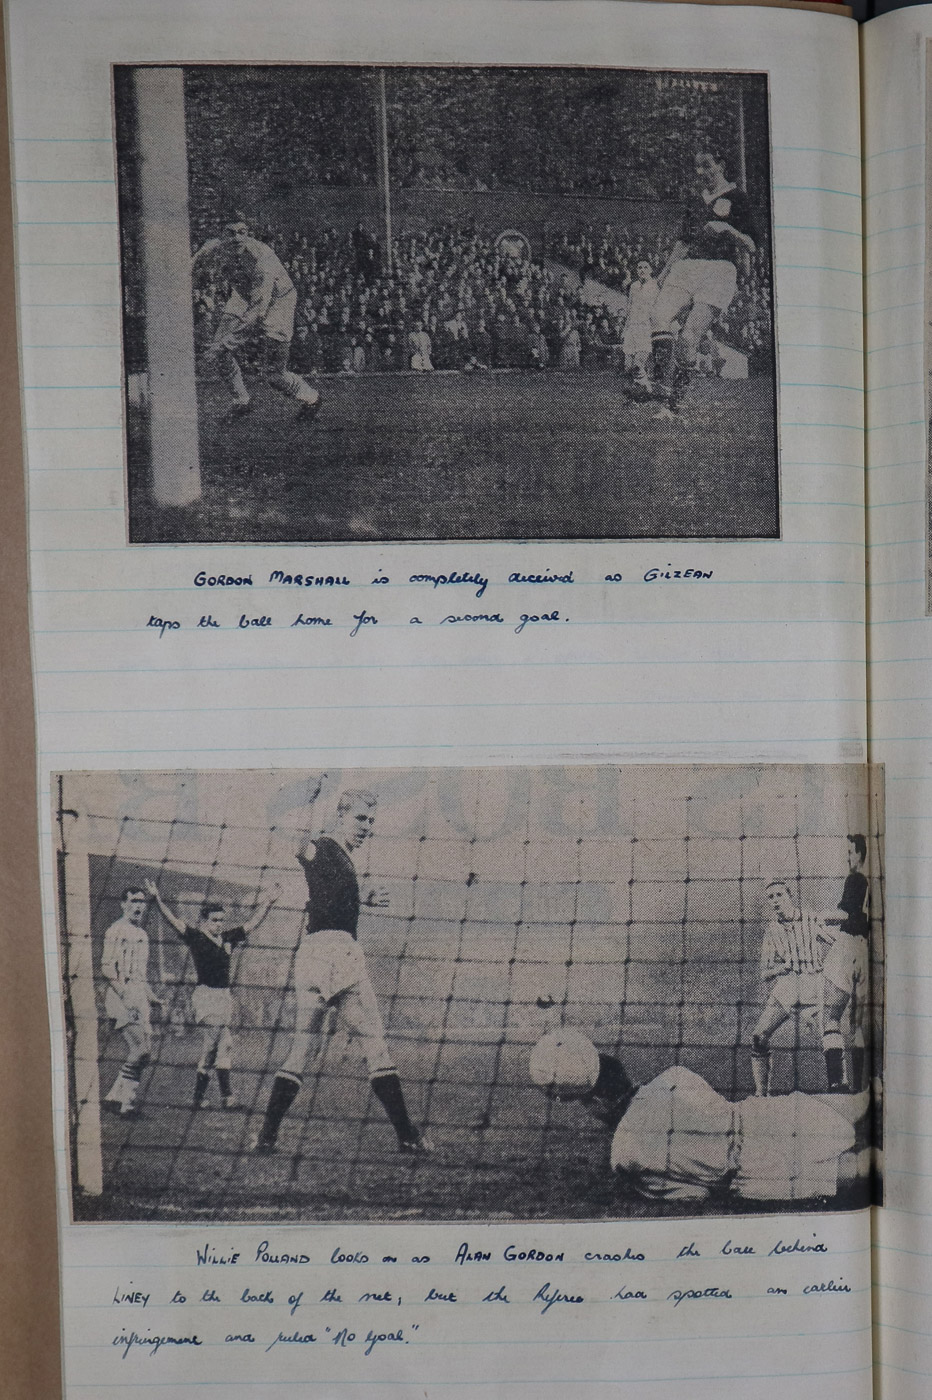 GORDON MARSHALL is completely deceived as GILZEAN
taps the ball home for a second goal.
WILLIE POLLAND looks on as ALAN GORDON crashes the ball behind
LINEY to the back of the net, but the Referee had spotted an earlier
infringement and ruled "No Goal."